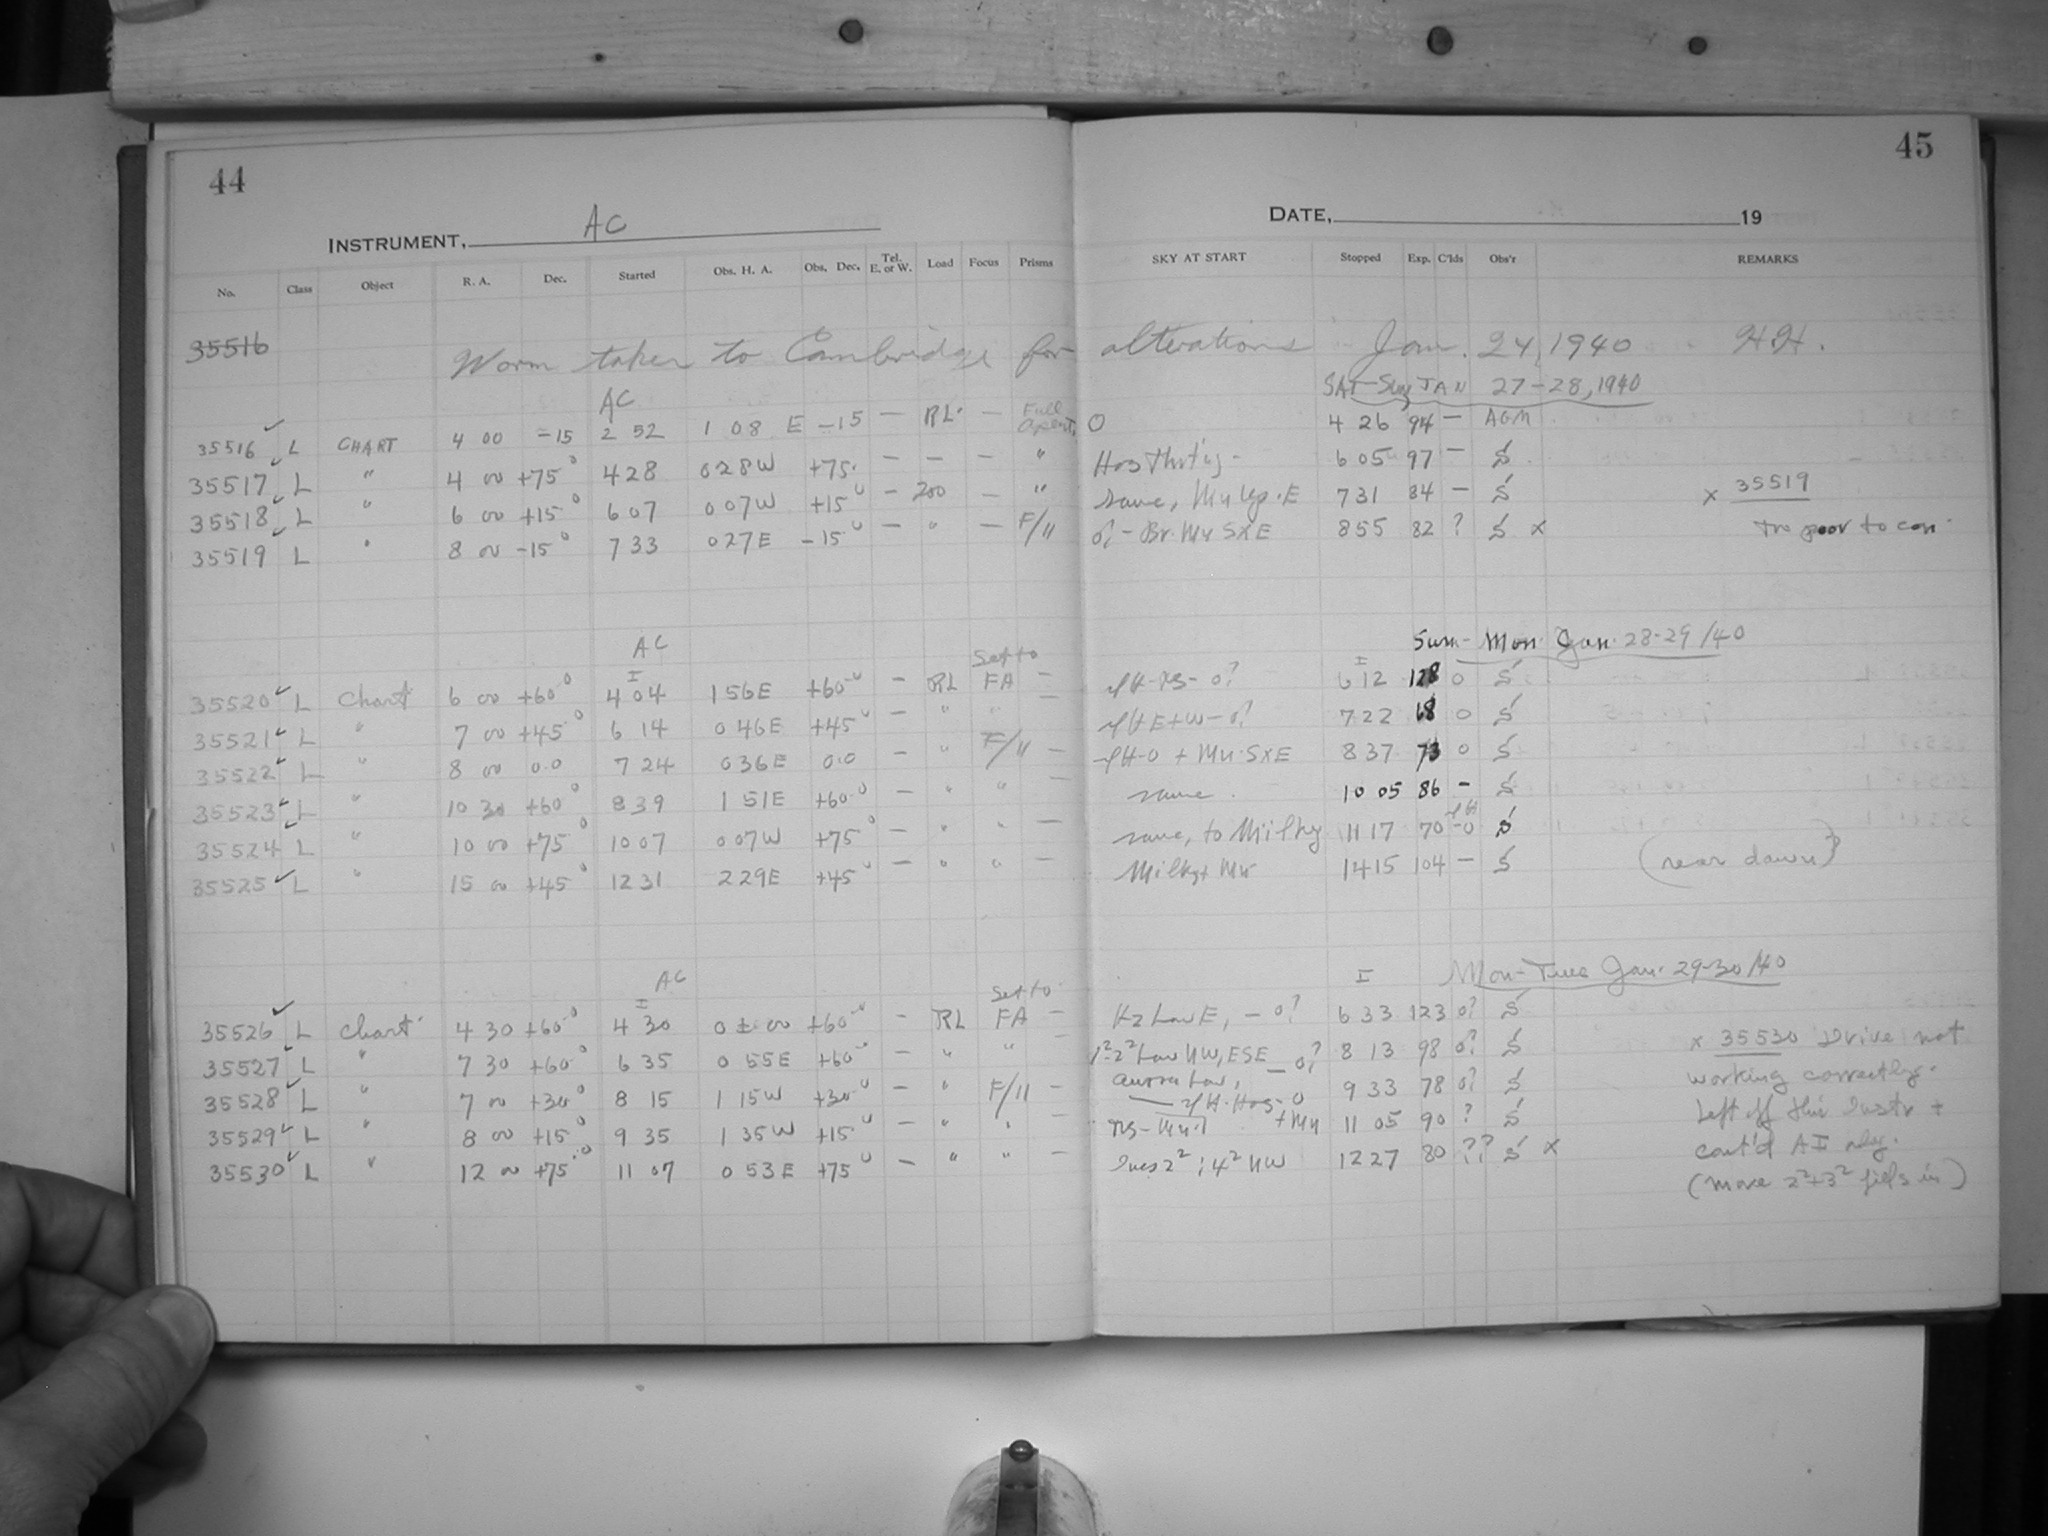 44
45
INSTRUMENT, AC
DATE, 19
No. Class Object R. A. Dec. Started Obs. H. A. Obs. Dec. Tel. E. or W. Load Focus Prisms SKY AT START Stopped Exp. C'lds Obs'r REMARKS
35516
Worm taken to Cambridge for alterations Jan. 24, 1940 H.H.
AC SAT-Sun JAN 27-28, 1940
35516 ✓ L CHART 4 00 -15 2 52 1 08 E -15 — RL. — Full Apert. 0 4 26 94 — AGM
35517 ✓ L " 4 00 +75° 4 28 0 28 W +75. — — — " 6 05 97 — S
35518 ✓ L " 6 00 +15° 6 07 0 07 W +15° — 200 — " same, E 7 31 84 — S × 35519
35519 ✓ L " 8 00 -15° 7 33 0 27 E -15° — " — F/11 8 55 82 ? S × too poor to con.
AC Set to Sun-Mon. Jan. 28-29/40
I I
35520 ✓ L Chart 6 00 +60° 4 04 1 56 E +60° — RL FA — 6 12 128 0 S
35521 ✓ L " 7 00 +45° 6 14 0 46 E +45° — " " — 7 22 68 0 S
35522 ✓ L " 8 00 0.0 7 24 0 36 E 0.0 — " F/11 — 8 37 73 0 S
35523 ✓ L " 10 30 +60° 8 39 1 51 E +60° — " " — same. 10 05 86 — S
35524 ✓ L " 10 00 +75° 10 07 0 07 W +75° — " " — same, to Milky 11 17 70 -0 S
35525 ✓ L " 15 00 +45° 12 31 2 29 E +45° — " " — Milky 14 15 104 — S (near dawn)
AC Set to I Mon-Tues Jan. 29-30/40
I
35526 ✓ L Chart 4 30 +60° 4 30 0 ± 00 +60° — RL FA — Hz Low E, — 0? 6 33 123 0? S
35527 ✓ L " 7 30 +60° 6 35 0 55 E +60° — " " — Low NW, ESE — 0? 8 13 98 0? S × 35530 Drive not
35528 ✓ L " 7 00 +30° 8 15 1 15 W +30° — " F/11 — Aurora Low, 9 33 78 0? S working correctly.
35529 ✓ L " 8 00 +15° 9 35 1 35 W +15° — " " — 11 05 90 ? S Left off this Instr +
35530 ✓ L " 12 00 +75° 11 07 0 53 E +75° — " " — 2²; 4² NW 12 27 80 ?? S × cont'd AI only.
(more 2²+3² in)